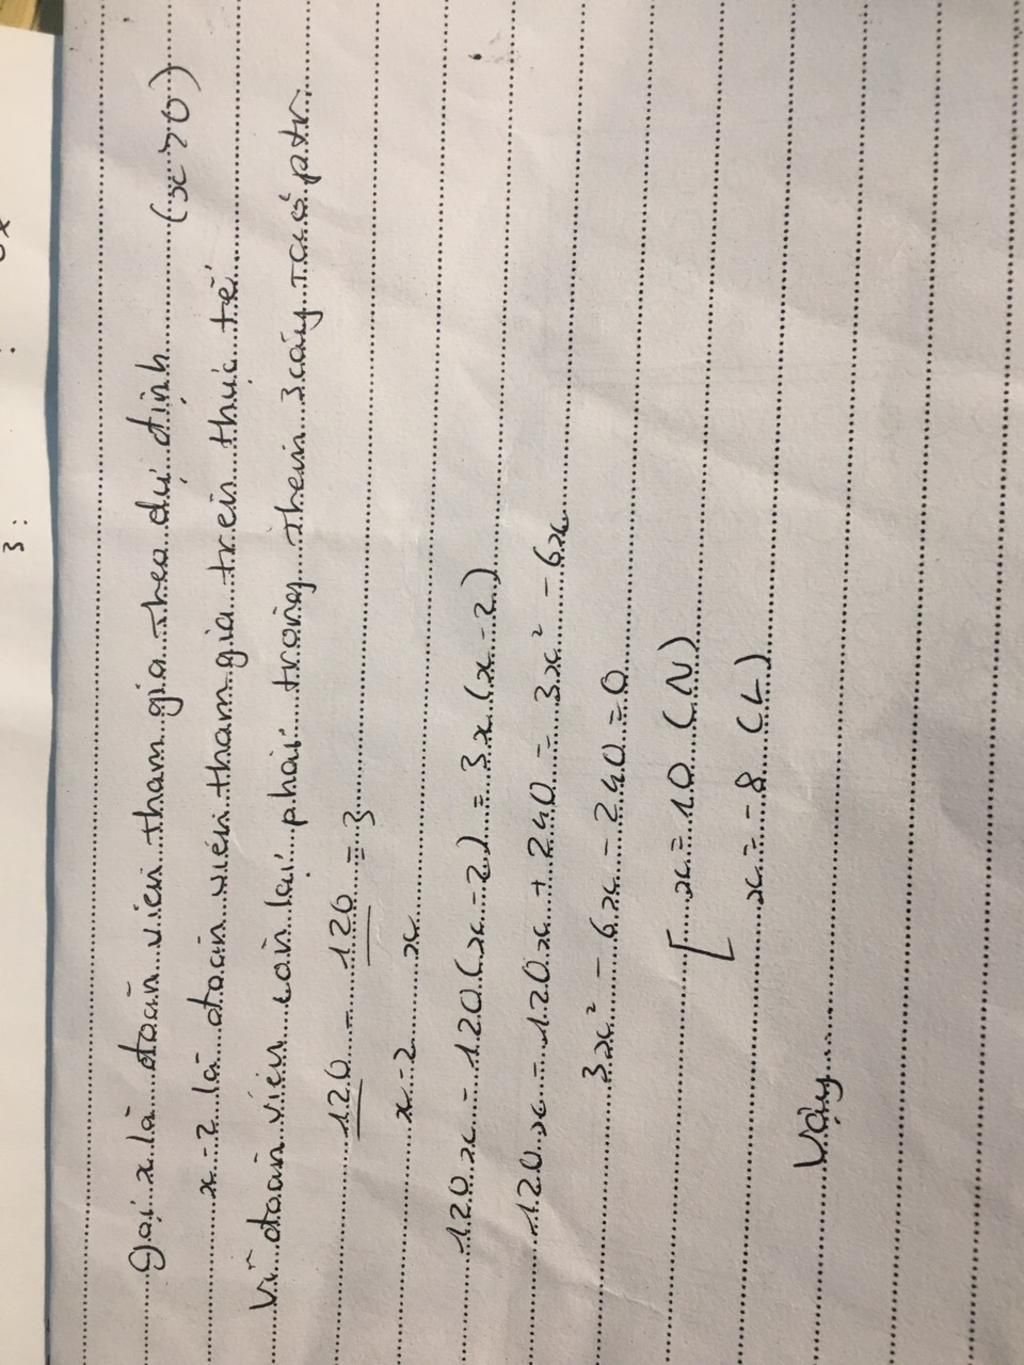 Gọi x là đoàn viên tham gia theo dự định (x > 0)
x - 2 là đoàn viên tham gia trên thực tế
Vì đoàn viên còn lại phải trồng thêm 3 cây ta có ptr
120/x-2 - 120/x = 3
120x - 120(x - 2) = 3x(x - 2)
120x - 120x + 240 = 3x² - 6x
3x² - 6x - 240 = 0
[ x = 10 (N)
x = -8 (L)
Vậy
3 :